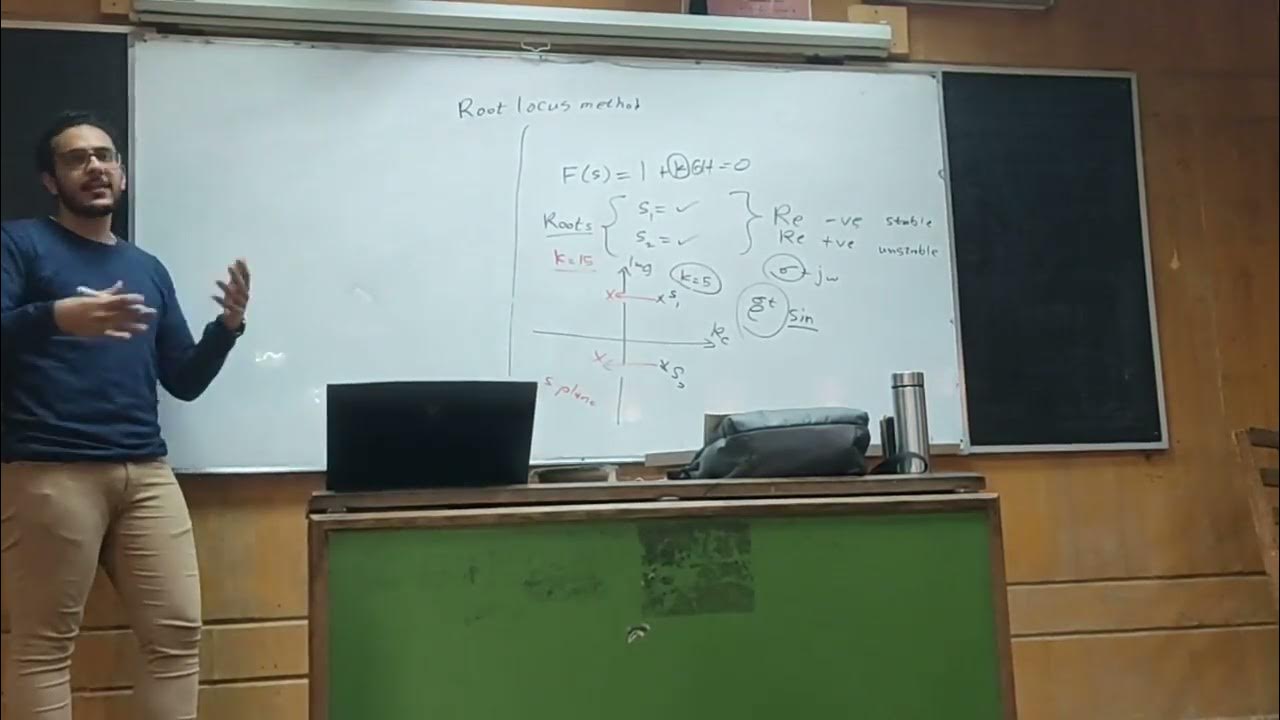 Root locus method
F(s) = 1 + kGH = 0
Roots { S₁ = ✓
S₂ = ✓ } Re -ve stable
Re +ve unstable
k=15
Img
k=5
σ + jω
x x S₁
t
sin
Re
x x S₂
s plane